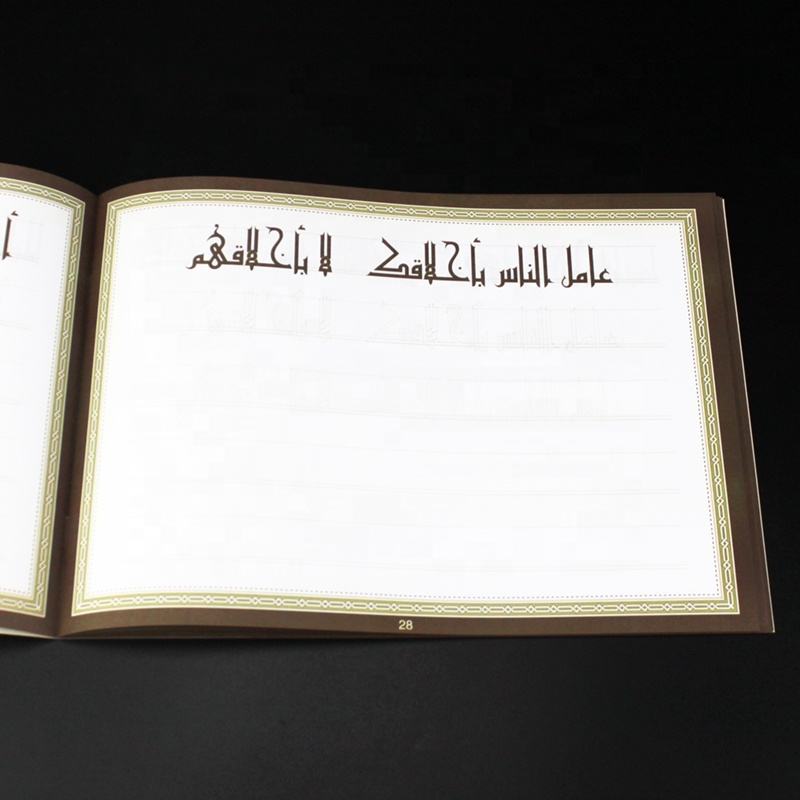 عامل الناس بأخلاقك لا بأخلاقهم
28